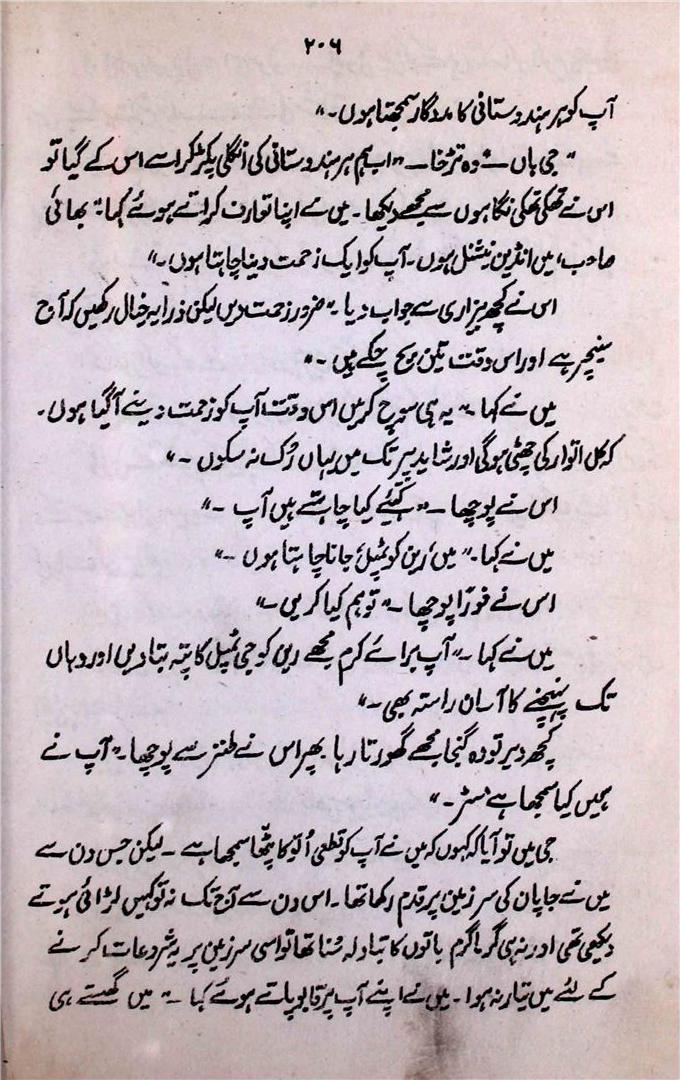 ۲۰۶
آپ کو ہر ہندوستانی کا مددگار سمجھتا ہوں۔"
"جی ہاں — وہ تڑخا — "اب ہم ہر ہندوستانی کی انگلی پکڑ کر اسے اس کے گیا تو
اس نے تھکی تھکی نگاہوں سے مجھے دیکھا۔ میں نے اپنا تعارف کراتے ہوئے کہا: "بھائی
صاحب، میں انڈین نیشنل ہوں۔ آپ کو ایک زحمت دینا چاہتا ہوں۔"
اس نے کچھ بیزاری سے جواب دیا۔ "ضرور زحمت دیں لیکن ذرا یہ خیال رکھیں کہ آج
سنیچر ہے اور اس وقت تین بج چکے ہیں۔"
میں نے کہا۔ "یہ ہی سوچ کر میں اس وقت آپ کو زحمت دینے آگیا ہوں۔
کہ کل اتوار کی چھٹی ہوگی اور شاید پیر تک میں یہاں رُک نہ سکوں۔"
اس نے پوچھا — "کہیئے کیا چاہتے ہیں آپ۔"
میں نے کہا۔ "میں 'رین کو ٹمپل' جانا چاہتا ہوں۔"
اس نے فوراً پوچھا۔ "تو ہم کیا کریں۔"
میں نے کہا۔ "آپ برائے کرم مجھے رین کوجی ٹمپل کا پتہ بتا دیں اور وہاں
تک پہنچنے کا آسان راستہ بھی۔"
کچھ دیر تو وہ گنجا مجھے گھورتا رہا پھر اس نے طنز سے پوچھا۔ "آپ نے
ہمیں کیا سمجھا ہے مسٹر۔"
جی میں تو آیا کہ کہوں کہ میں نے آپ کو قطعی اُلّو کا پٹھا سمجھا ہے۔ لیکن جس دن سے
میں نے جاپان کی سرزمین پر قدم رکھا تھا۔ اس دن سے آج تک نہ تو کہیں لڑائی ہوتے
دیکھی تھی اور نہ ہی گرما گرم باتوں کا تبادلہ سُنا تھا تو اسی سرزمین پر یہ شروعات کرنے
کے لئے میں تیار نہ ہوا۔ میں نے اپنے آپ پر قابو پاتے ہوئے کہا۔ "میں گھستے ہی